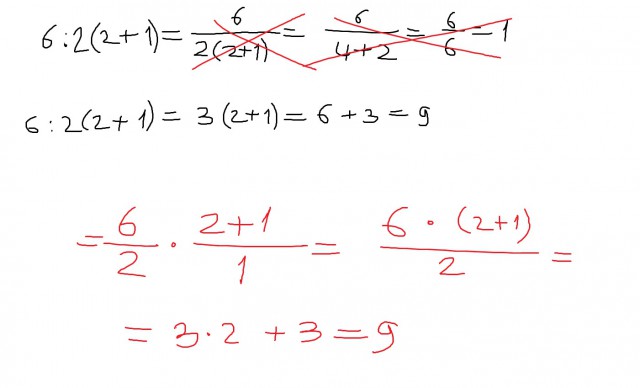 6:2(2+1)= 6/2(2+1) = 6/4+2 = 6/6 = 1
6:2(2+1)= 3(2+1)= 6+3=9
= 6/2 · 2+1/1 = 6·(2+1)/2 =
= 3·2+3=9